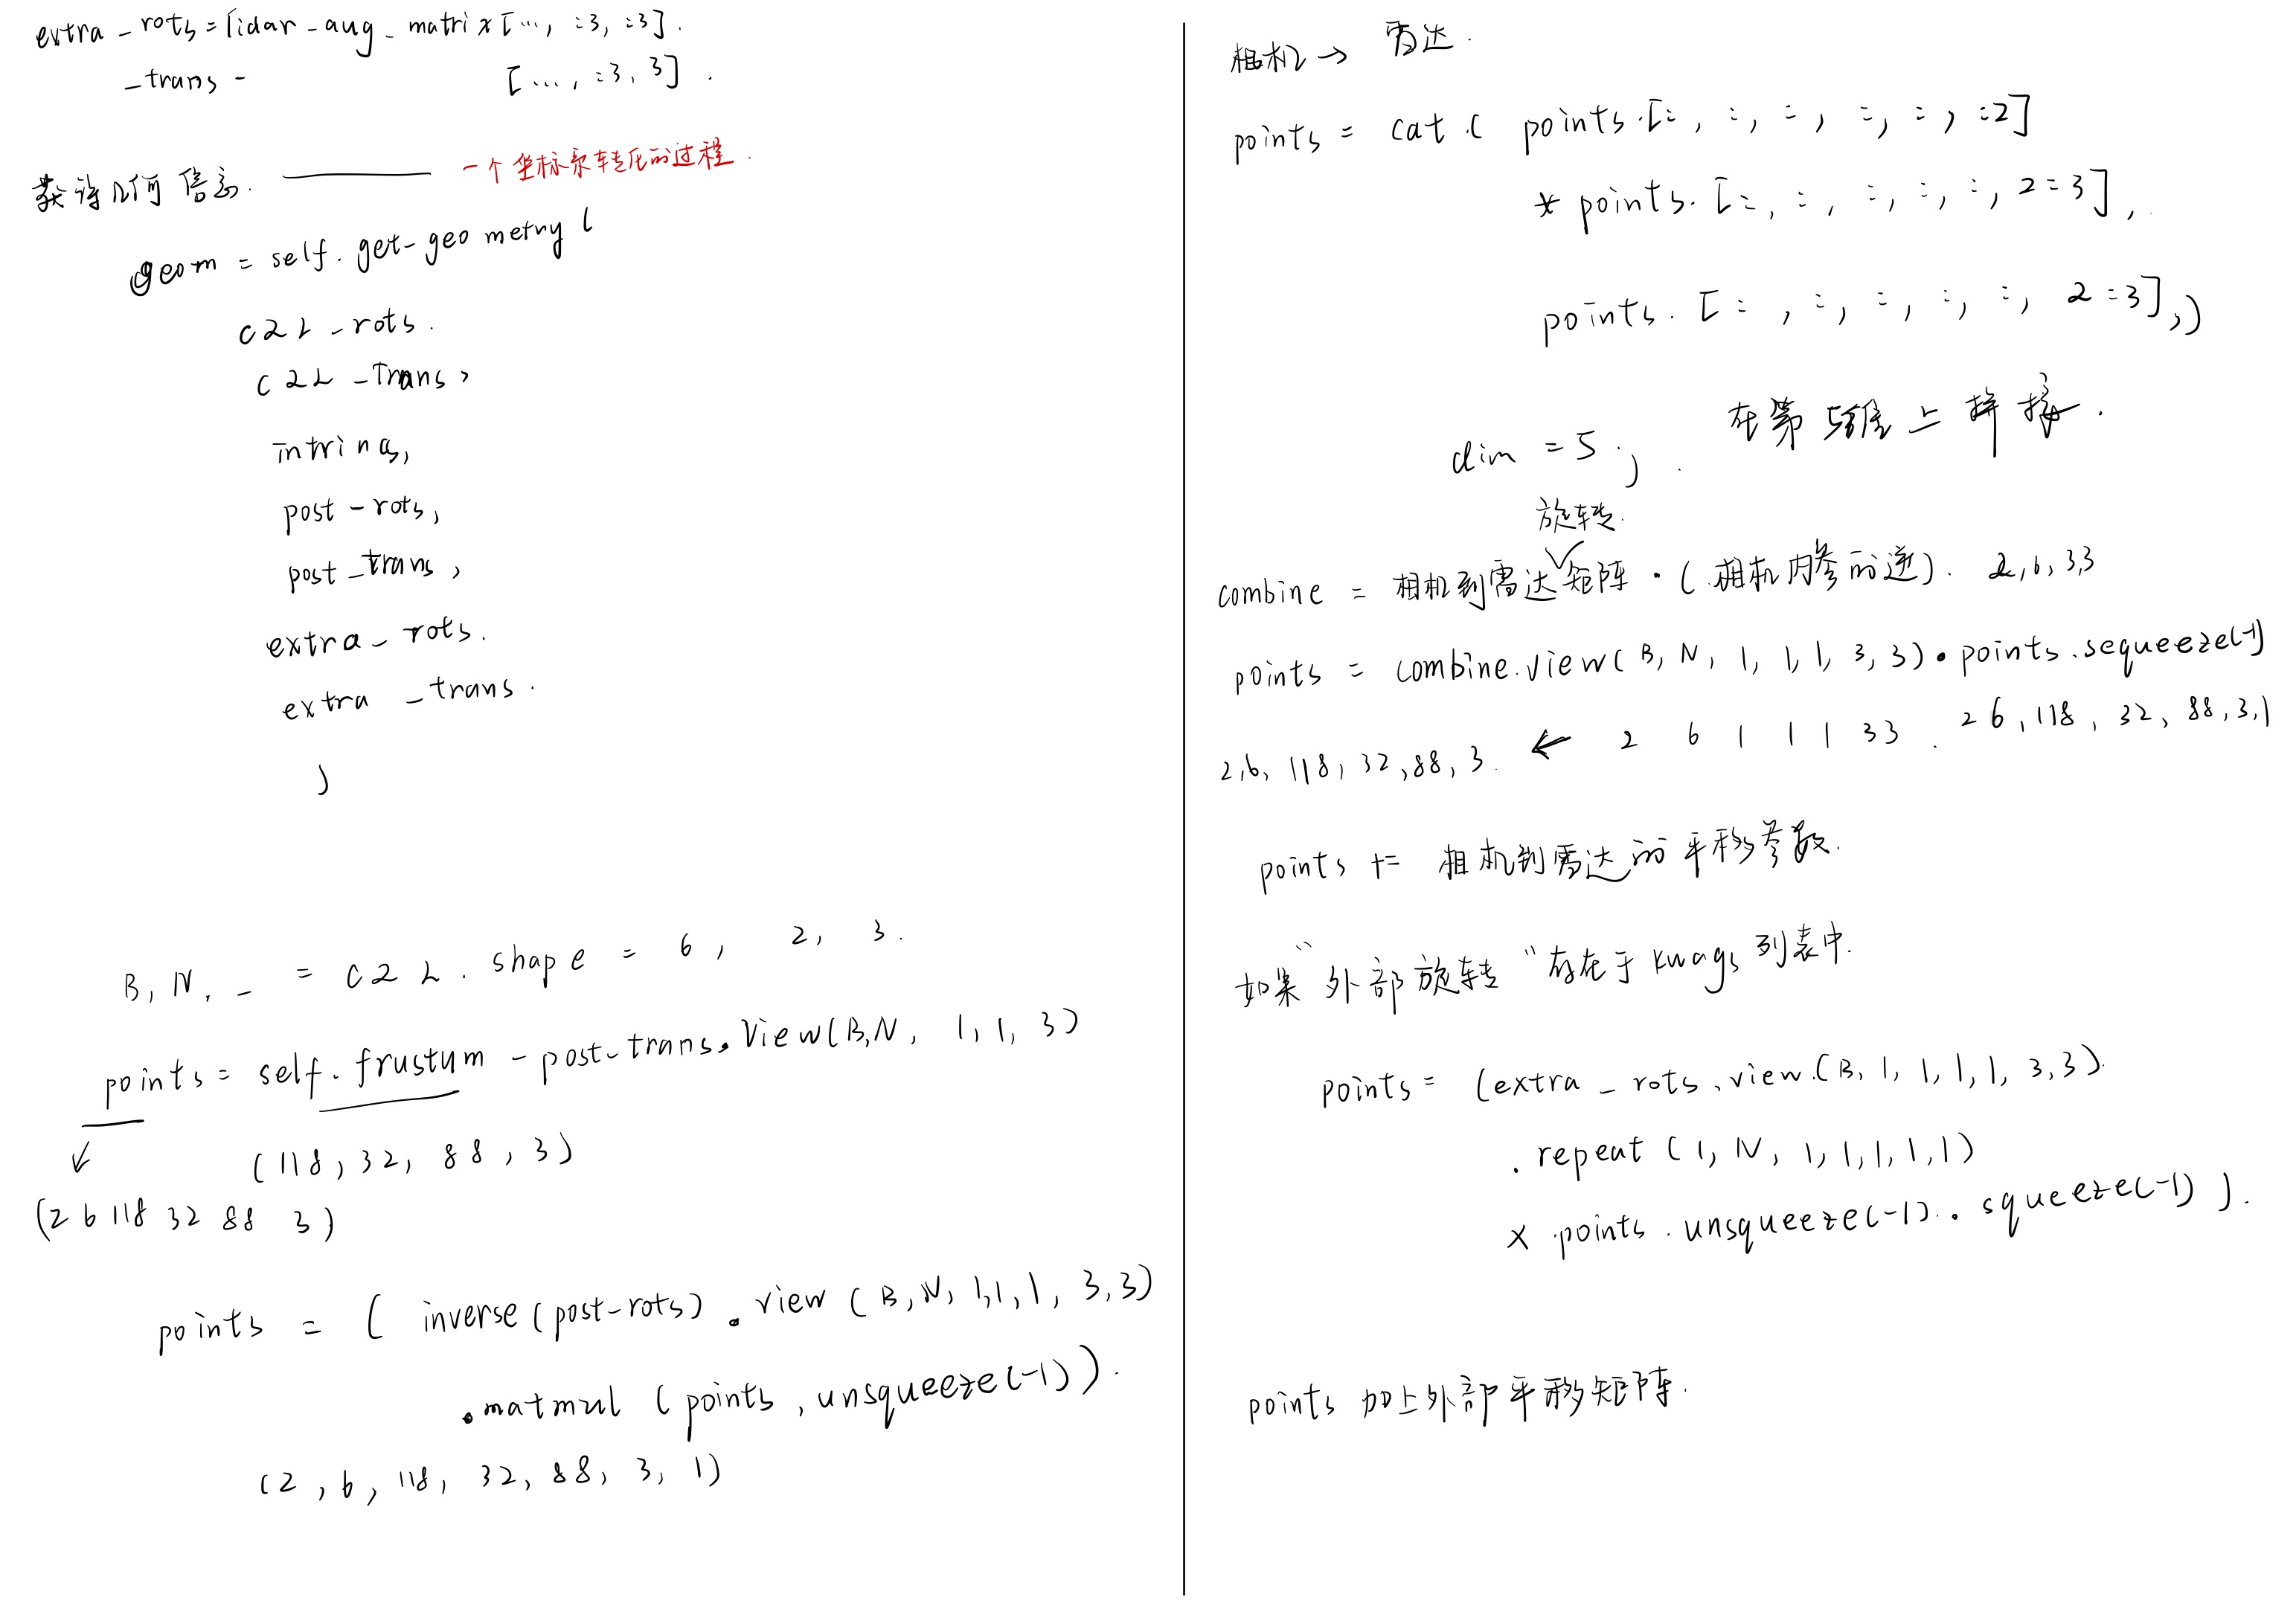 extra_rots=lidar_aug_matrix[..., :3, :3].
_trans - [..., :3, 3].
获得几何信息. —— 一个坐标系转化的过程.
geom = self.get-geometry(
c2L_rots.
c2L_Trans,
intrins,
post-rots,
post_trans,
extra_rots.
extra_trans.
)
B, N, _ = c2L.shape = 6, 2, 3.
points = self.frustum - post-trans.View(B,N, 1, 1, 3)
↙ (118, 32, 88, 3)
(2 6 118 32 88 3)
points = ( inverse(post-rots).view(B,N,1,1,1,3,3)
.matmul(points,unsqueeze(-1)).
(2, 6, 118, 32, 88, 3, 1)
相机→ 雷达.
points = cat.( points.[:, :, :, :, :, :2]
* points.[:, :, :, :, :, 2:3],
points.[:, :, :, :, :, 2:3],)
dim = 5.) . 在第5维上拼接.
旋转.
combine = 相机到雷达矩阵·(相机内参的逆). 2,6,3,3
points = combine.view(B, N, 1, 1, 1, 3, 3)·points.sequeeze(-1)
2,6, 118, 32,88, 3. ← 2 6 1 1 1 3 3 . 2 6,118, 32, 88,3,1
points += 相机到雷达的平移参数.
如果"外部旋转"存在于kwags列表中.
points = (extra_rots.view.(B, 1, 1, 1, 1, 3,3).
.repeat(1, N, 1,1,1,1,1)
x points.unsqueeze(-1)..squeeze(-1)).
points 加上外部平移矩阵.